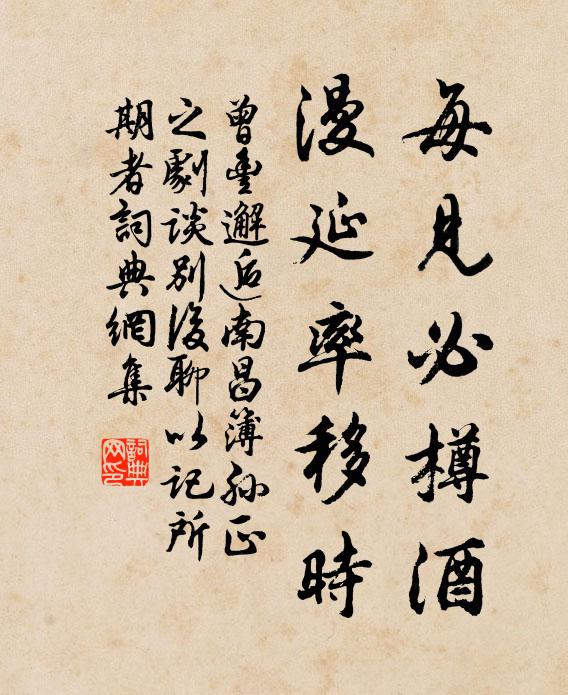 每見必樽酒
漫延率移時
曾豊邂逅南昌簿孫正
之劇談別後聊以記所
期者詞典網集
詞典
网印